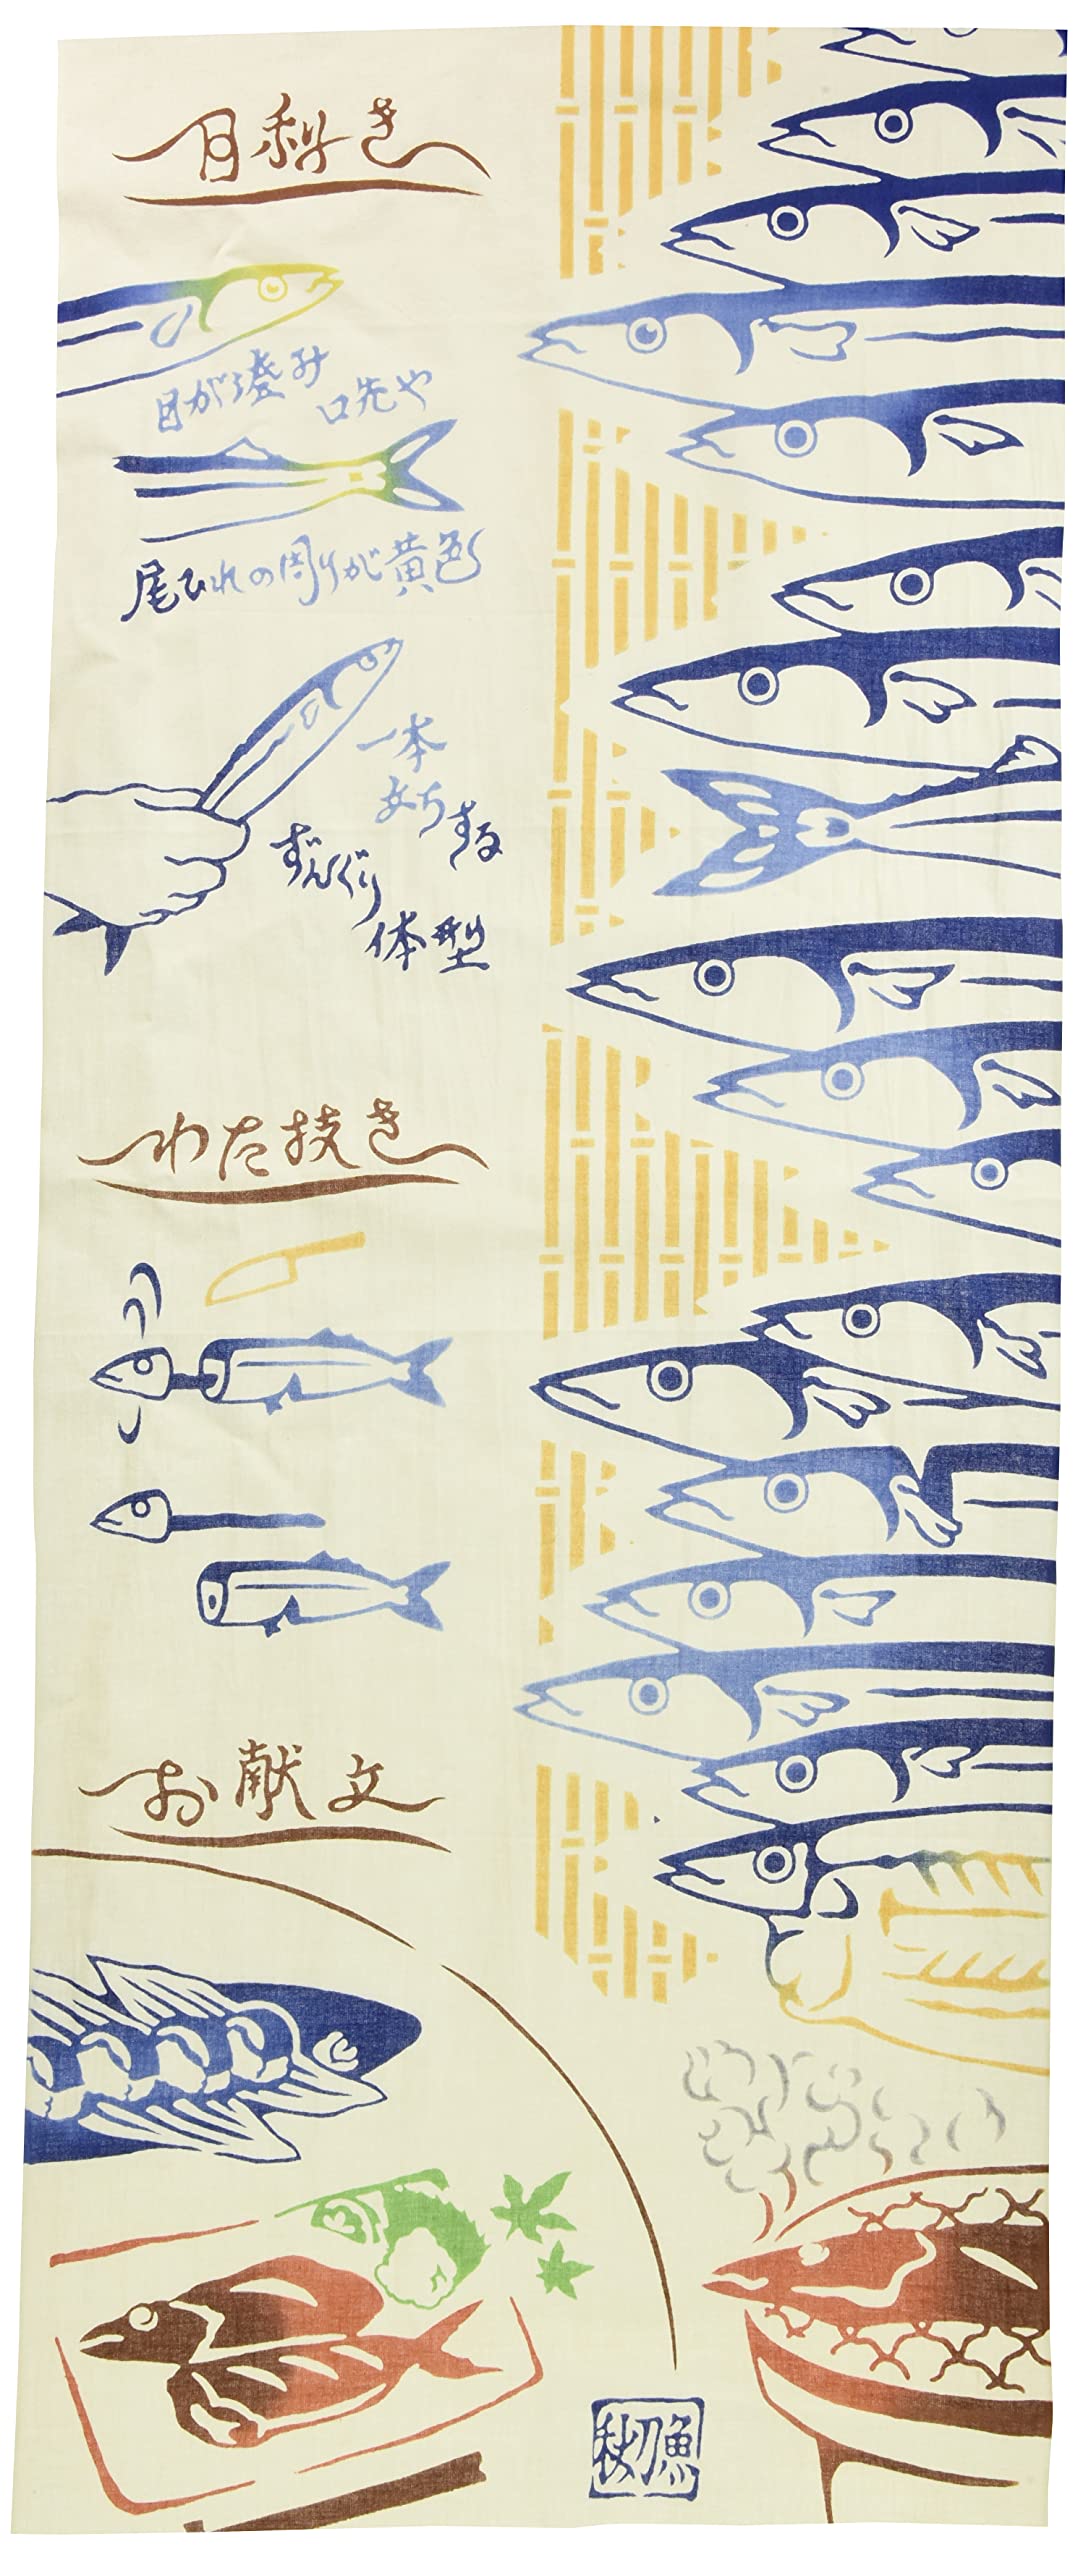 目利き
目が澄み
口先や
尾ひれの周りが黄色く
一本
立ちする
ずんぐり
体型
わた抜き
お献立
秋刀魚